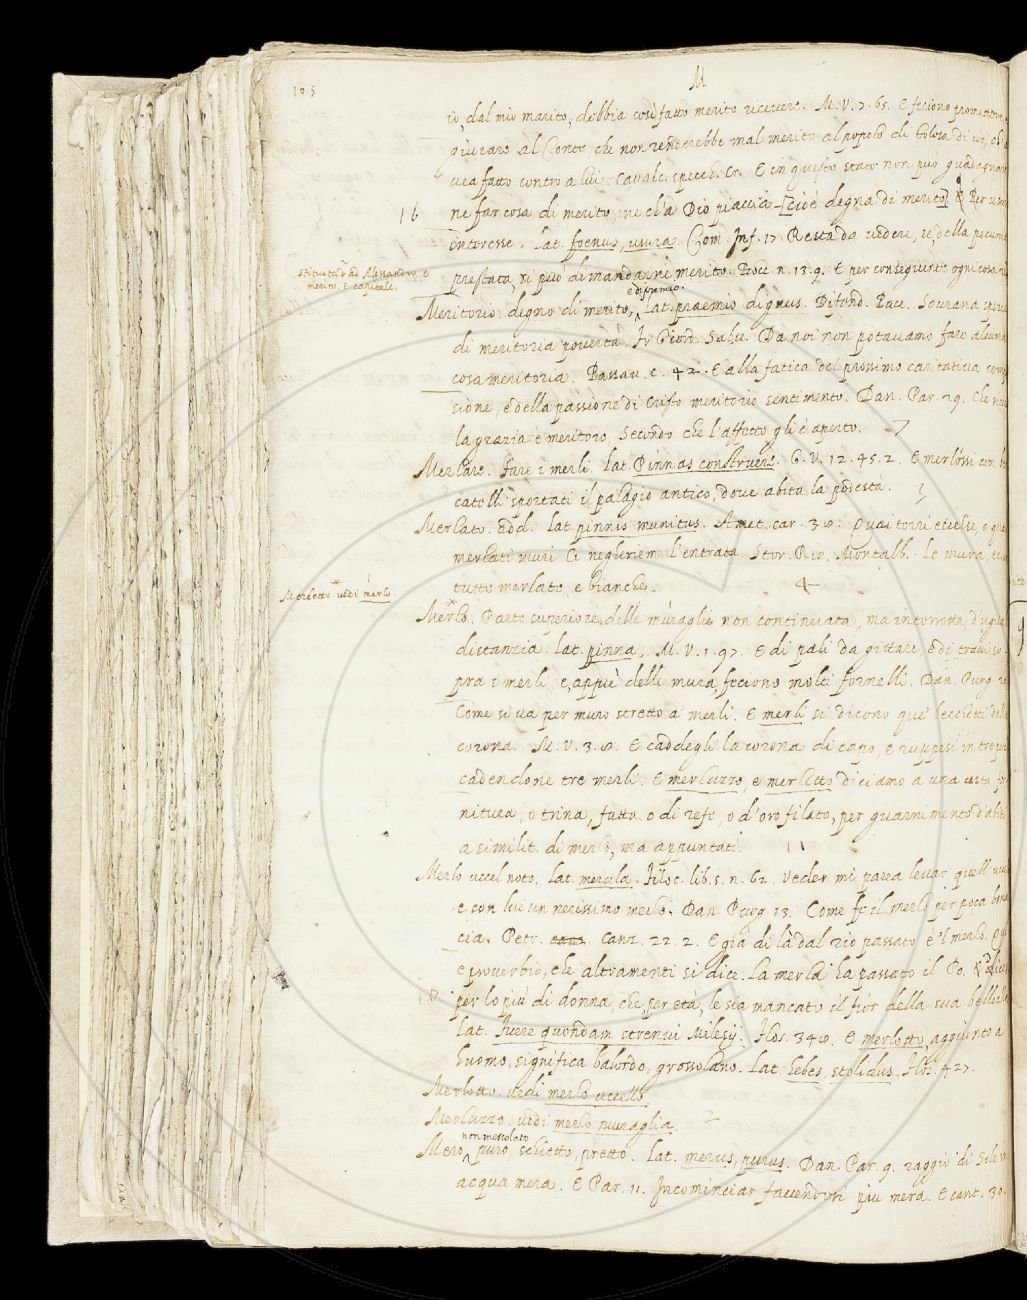 105
M
io, dal mio marito, debbia così fatto merito ricevere. M. V. 7. 65. E feciono promettere,
giurare al Conte, che non renderebbe mal merito al popolo di Tolosa di ciò, ch'
vea fatto contro a lui. Cavalc. specch. Cr. E in questo stato non può guadagnare
16
ne far cosa di merito, ne ch'a Dio piaccia [cioè degna di merito] & Per
interesse. Lat. foenus, usura. Com. Inf. 17 Resta da vedere, se della pecunia
stituito ad Alessandro, e
merito, e capitale.
prestata, si può dimandarne merito. Bocc. n. 13. 9. E per conseguente ogni cosa
e di premio.
Meritorio degno di merito, Lat. praemio dignus. Difend. Pace. Sovrana
di meritoria povertà. Fr. Giord. Salv. Da noi non potavamo fare alcuna
cosa meritoria. Passav. c. 42. E alla fatica del prossimo caritativa
sione, e della passione di Cristo meritorio sentimento. Dan. Par. 29. Che
la grazia è meritoro, Secondo che l'affetto gli è aperto. 7
Merlare. Fare i merli. Lat. Pinnas construere. G. V. 12. 45. 2. E merlossi con
catelli sportati il palagio antico, dove abita la podestà.
Merlato. Add. Lat. pinnis munitus. Amet. car. Quai torri eccelse, o
merlati muri Ci negheriem l'entrata. Stor. Rin. Montalb. Le mura,
tutte merlate, e bianche. 4
Merletto vedi merlo.
Merlo. Parte superiore delle muraglie non continuata, ma interrotta, d'ugual
distanzia. Lat. pinna. M. V. 1. 97. E di pali da gittare, e di travi so-
pra i merli e, appiè delle mura, feciono molti fornelli. Dan. Purg. 20
Come si va per muro stretto a' merli. E merli si dicono que' beccheti della
corona. M. V. 3. E caddegli la corona di capo, e ruppesi in tre parti
cadendone tre merli. E merluzzo, e merletto diciamo a una certa for
nitura, o trina, fatta o di refe, o d'oro filato, per guarnimento d'abiti
a similit. di merlo, ma appuntati. 11
Merlo uccel noto. Lat. merula. Filoc. lib. 5. n. 62. Veder mi parea levar quell'
e con lui un nerissimo merlo. Dan. Purg. 13. Come fe il merlo per poca bonac
cia. Petr. canz. 22. 2. E già di là dal rio passato è 'l merlo.
e proverbio, che altramenti si dice. La merla ha passato il Po.
10
per lo più di donna, che, per età, le sia mancato il fior della sua bellezza
Lat. Fuere quondam strenui Milesij. Flos. E merlotto, aggiunto a
huomo, significa balordo, grossolano. Lat. hebes, stolidus. Flos. 427.
Merlotto. vedi merlo uccello.
Merluzzo. vedi merlo muraglia.
non mescolato
Mero puro, schietto, pretto. Lat. merus, purus. Dan. Par. 9. raggio di Sole in
acqua mera. E Par. 11. Incominciar faccendosi più mera. E cant. 30.